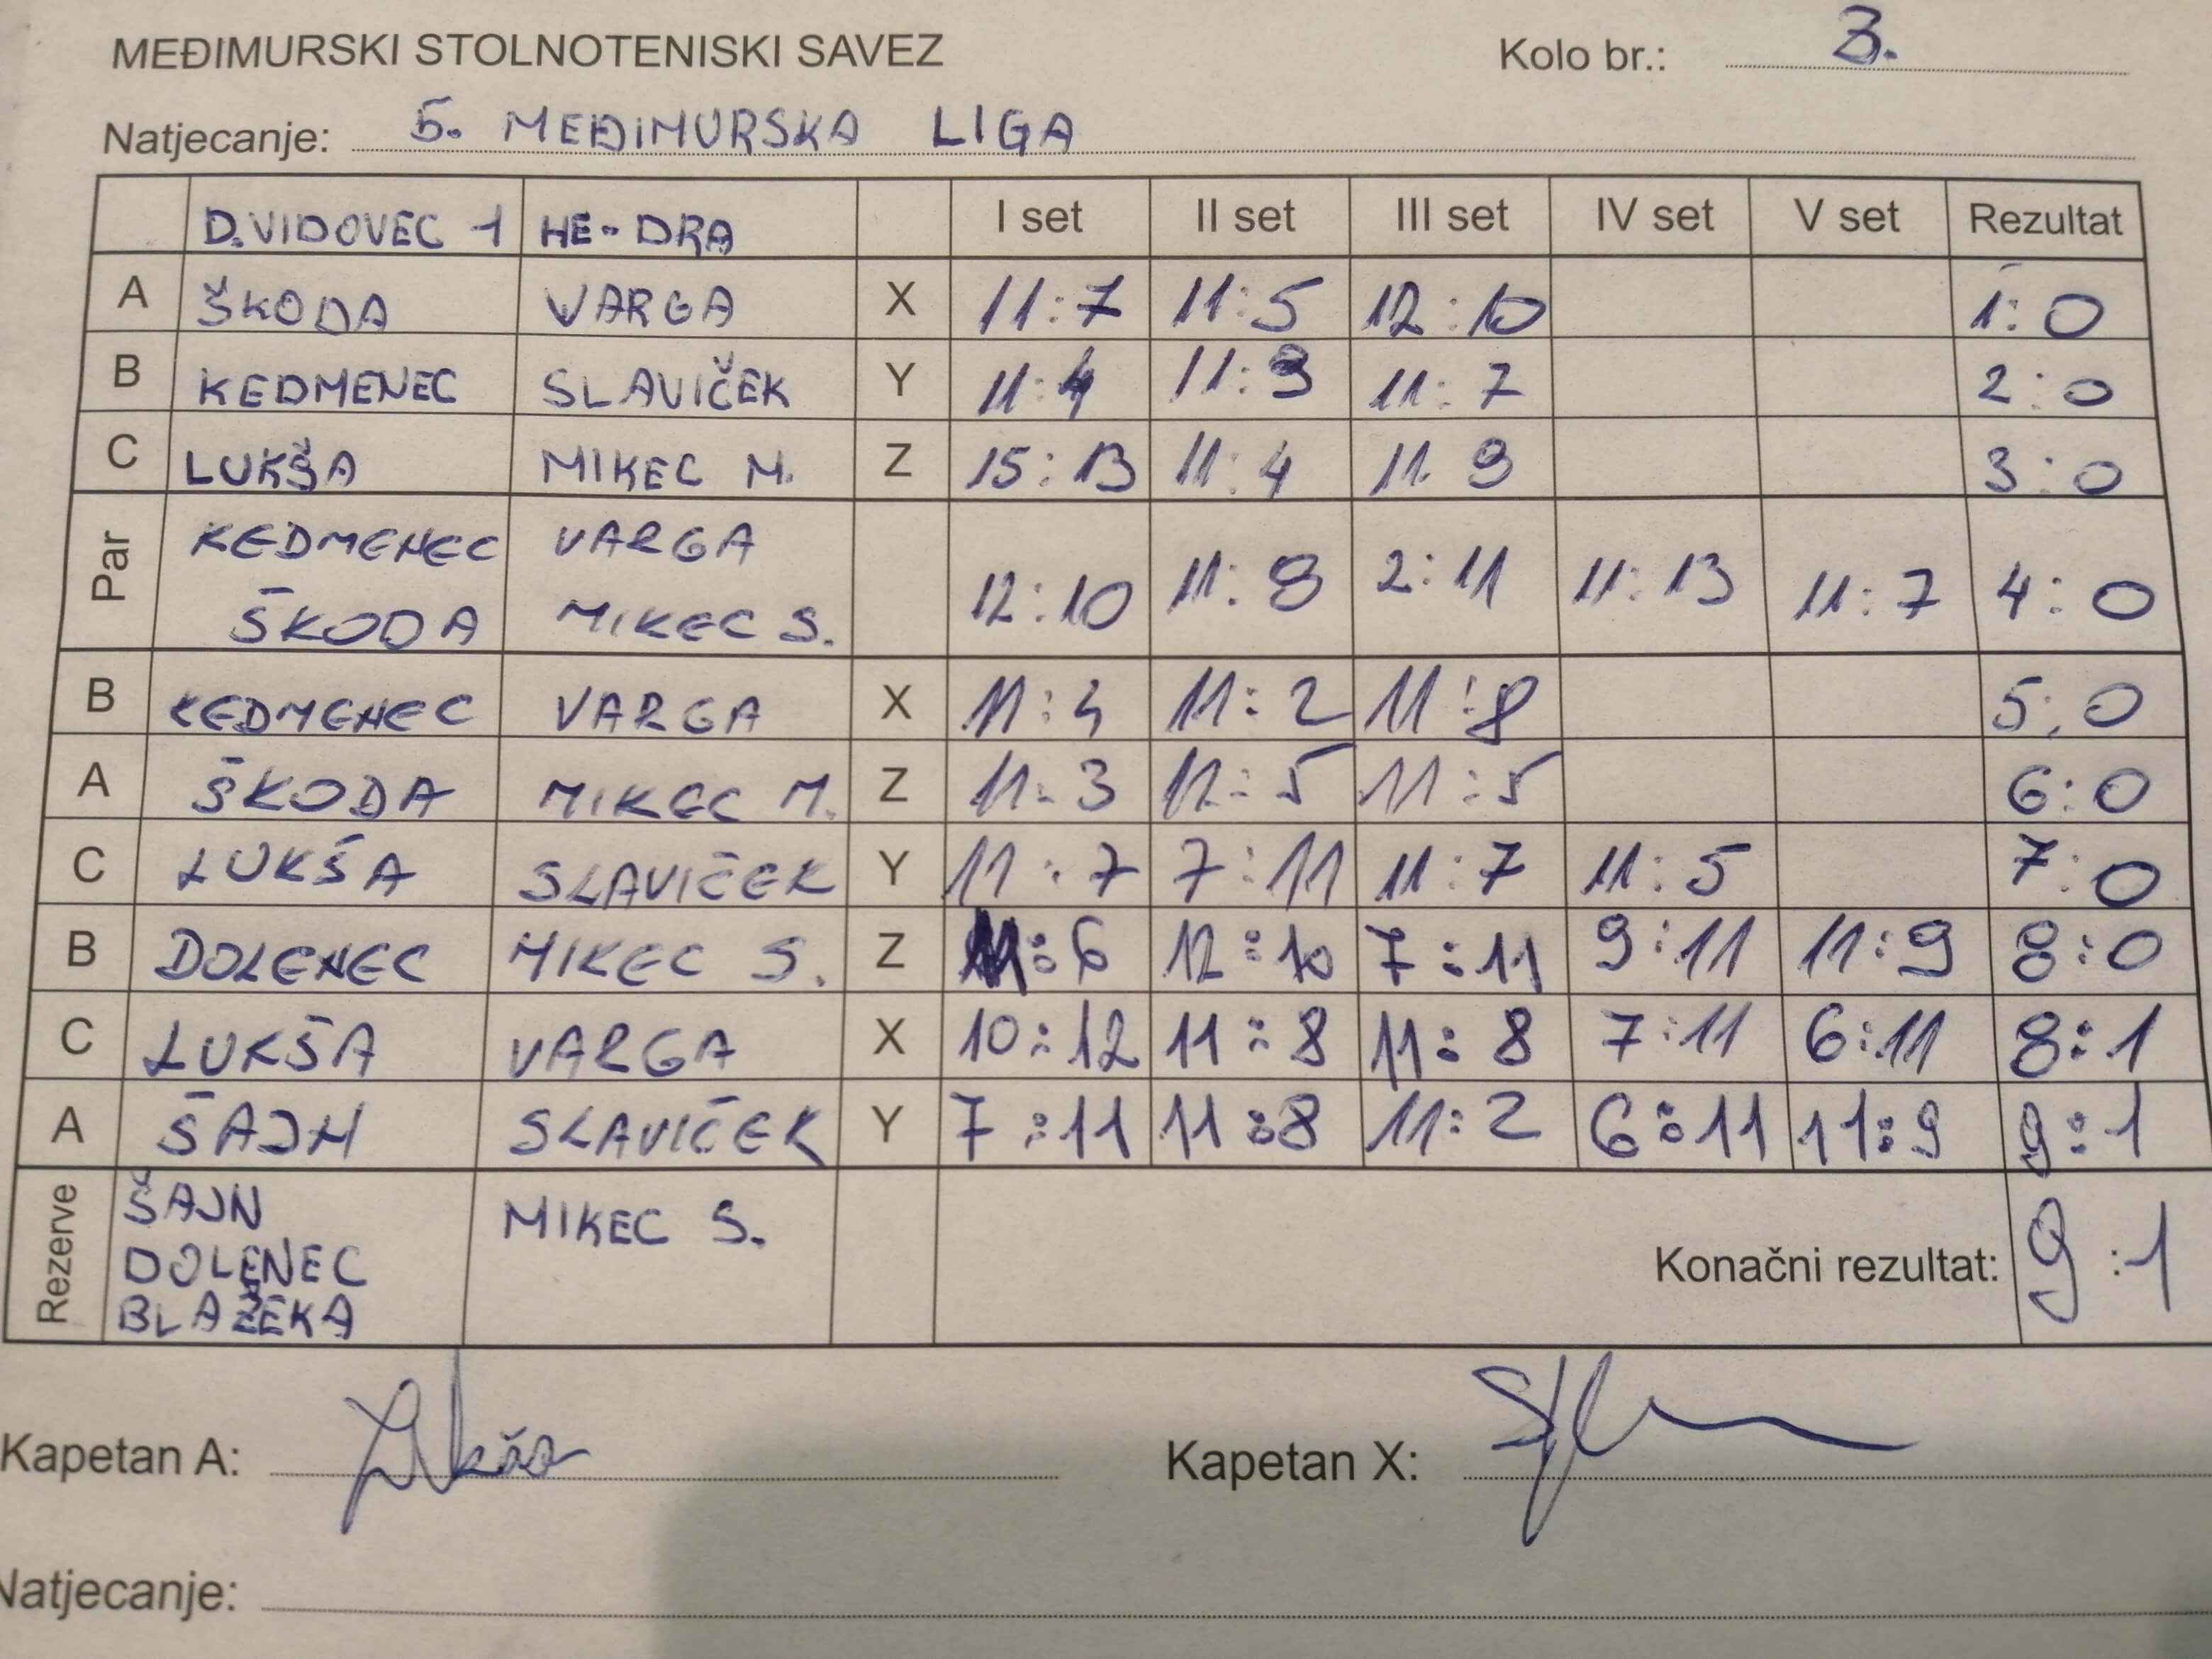 MEĐIMURSKI STOLNOTENISKI SAVEZ Kolo br.: 3.
Natjecanje: 5. MEĐIMURSKA LIGA
D.VIDOVEC 1 HE-DRA I set II set III set IV set V set Rezultat
A ŠKODA VARGA X 11:7 11:5 12:10 1:0
B KEDMENEC SLAVIČEK Y 11:4 11:3 11:7 2:0
C LUKŠA MIKEC M. Z 15:13 11:4 11:9 3:0
Par KEDMENEC VARGA
ŠKODA MIKEC S. 12:10 11:8 2:11 11:13 11:7 4:0
B KEDMENEC VARGA X 11:4 11:2 11:8 5:0
A ŠKODA MIKEC M. Z 11:3 11:5 11:5 6:0
C LUKŠA SLAVIČEK Y 11:7 7:11 11:7 11:5 7:0
B DOLENEC MIKEC S. Z 11:6 12:10 7:11 9:11 11:9 8:0
C LUKŠA VARGA X 10:12 11:8 11:8 7:11 6:11 8:1
A ŠAJN SLAVIČEK Y 7:11 11:8 11:2 6:11 11:9 9:1
Rezerve ŠAJN MIKEC S.
DOLENEC
BLAŽEKA
Konačni rezultat: 9:1
Kapetan A: Lukša Kapetan X:
Natjecanje: